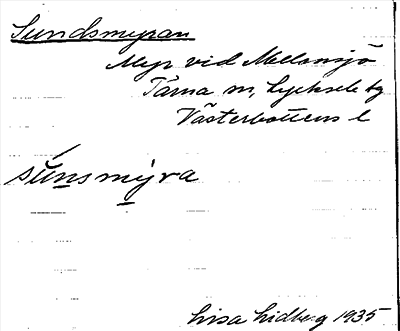 Sundsmyran
Myr vid Mellansjö
Tärna sn, Lycksele tg
Västerbottens l
súnsmýra
Lisa Lidberg 1935